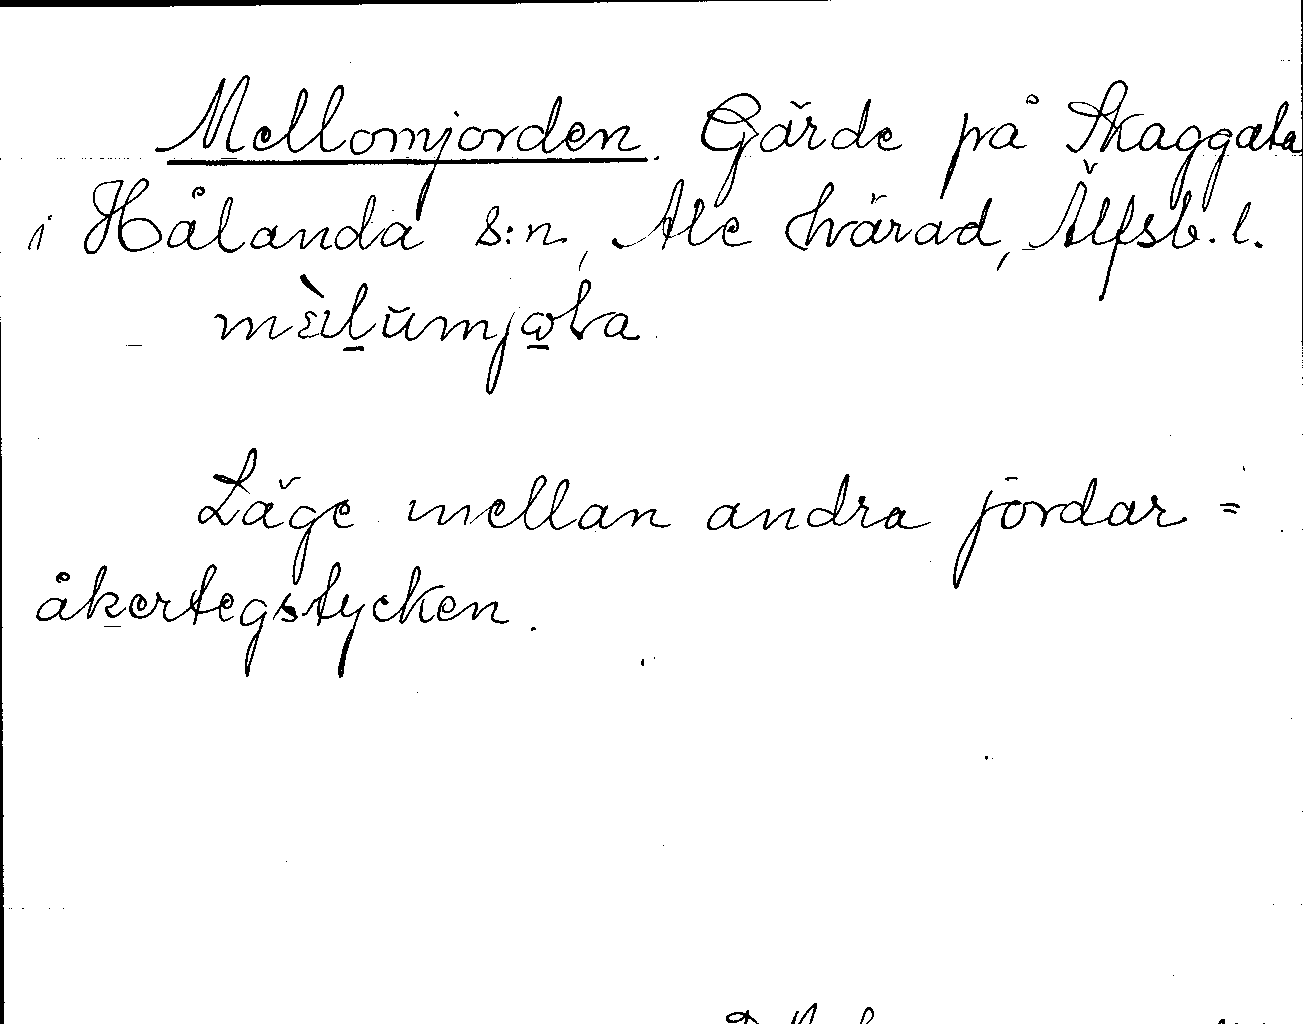 Mellomjorden. Gärde på Skaggata
i Hålanda s:n, Ale härad, Älfsb. l.
Läge mellan andra jordar =
åkertegstycken.